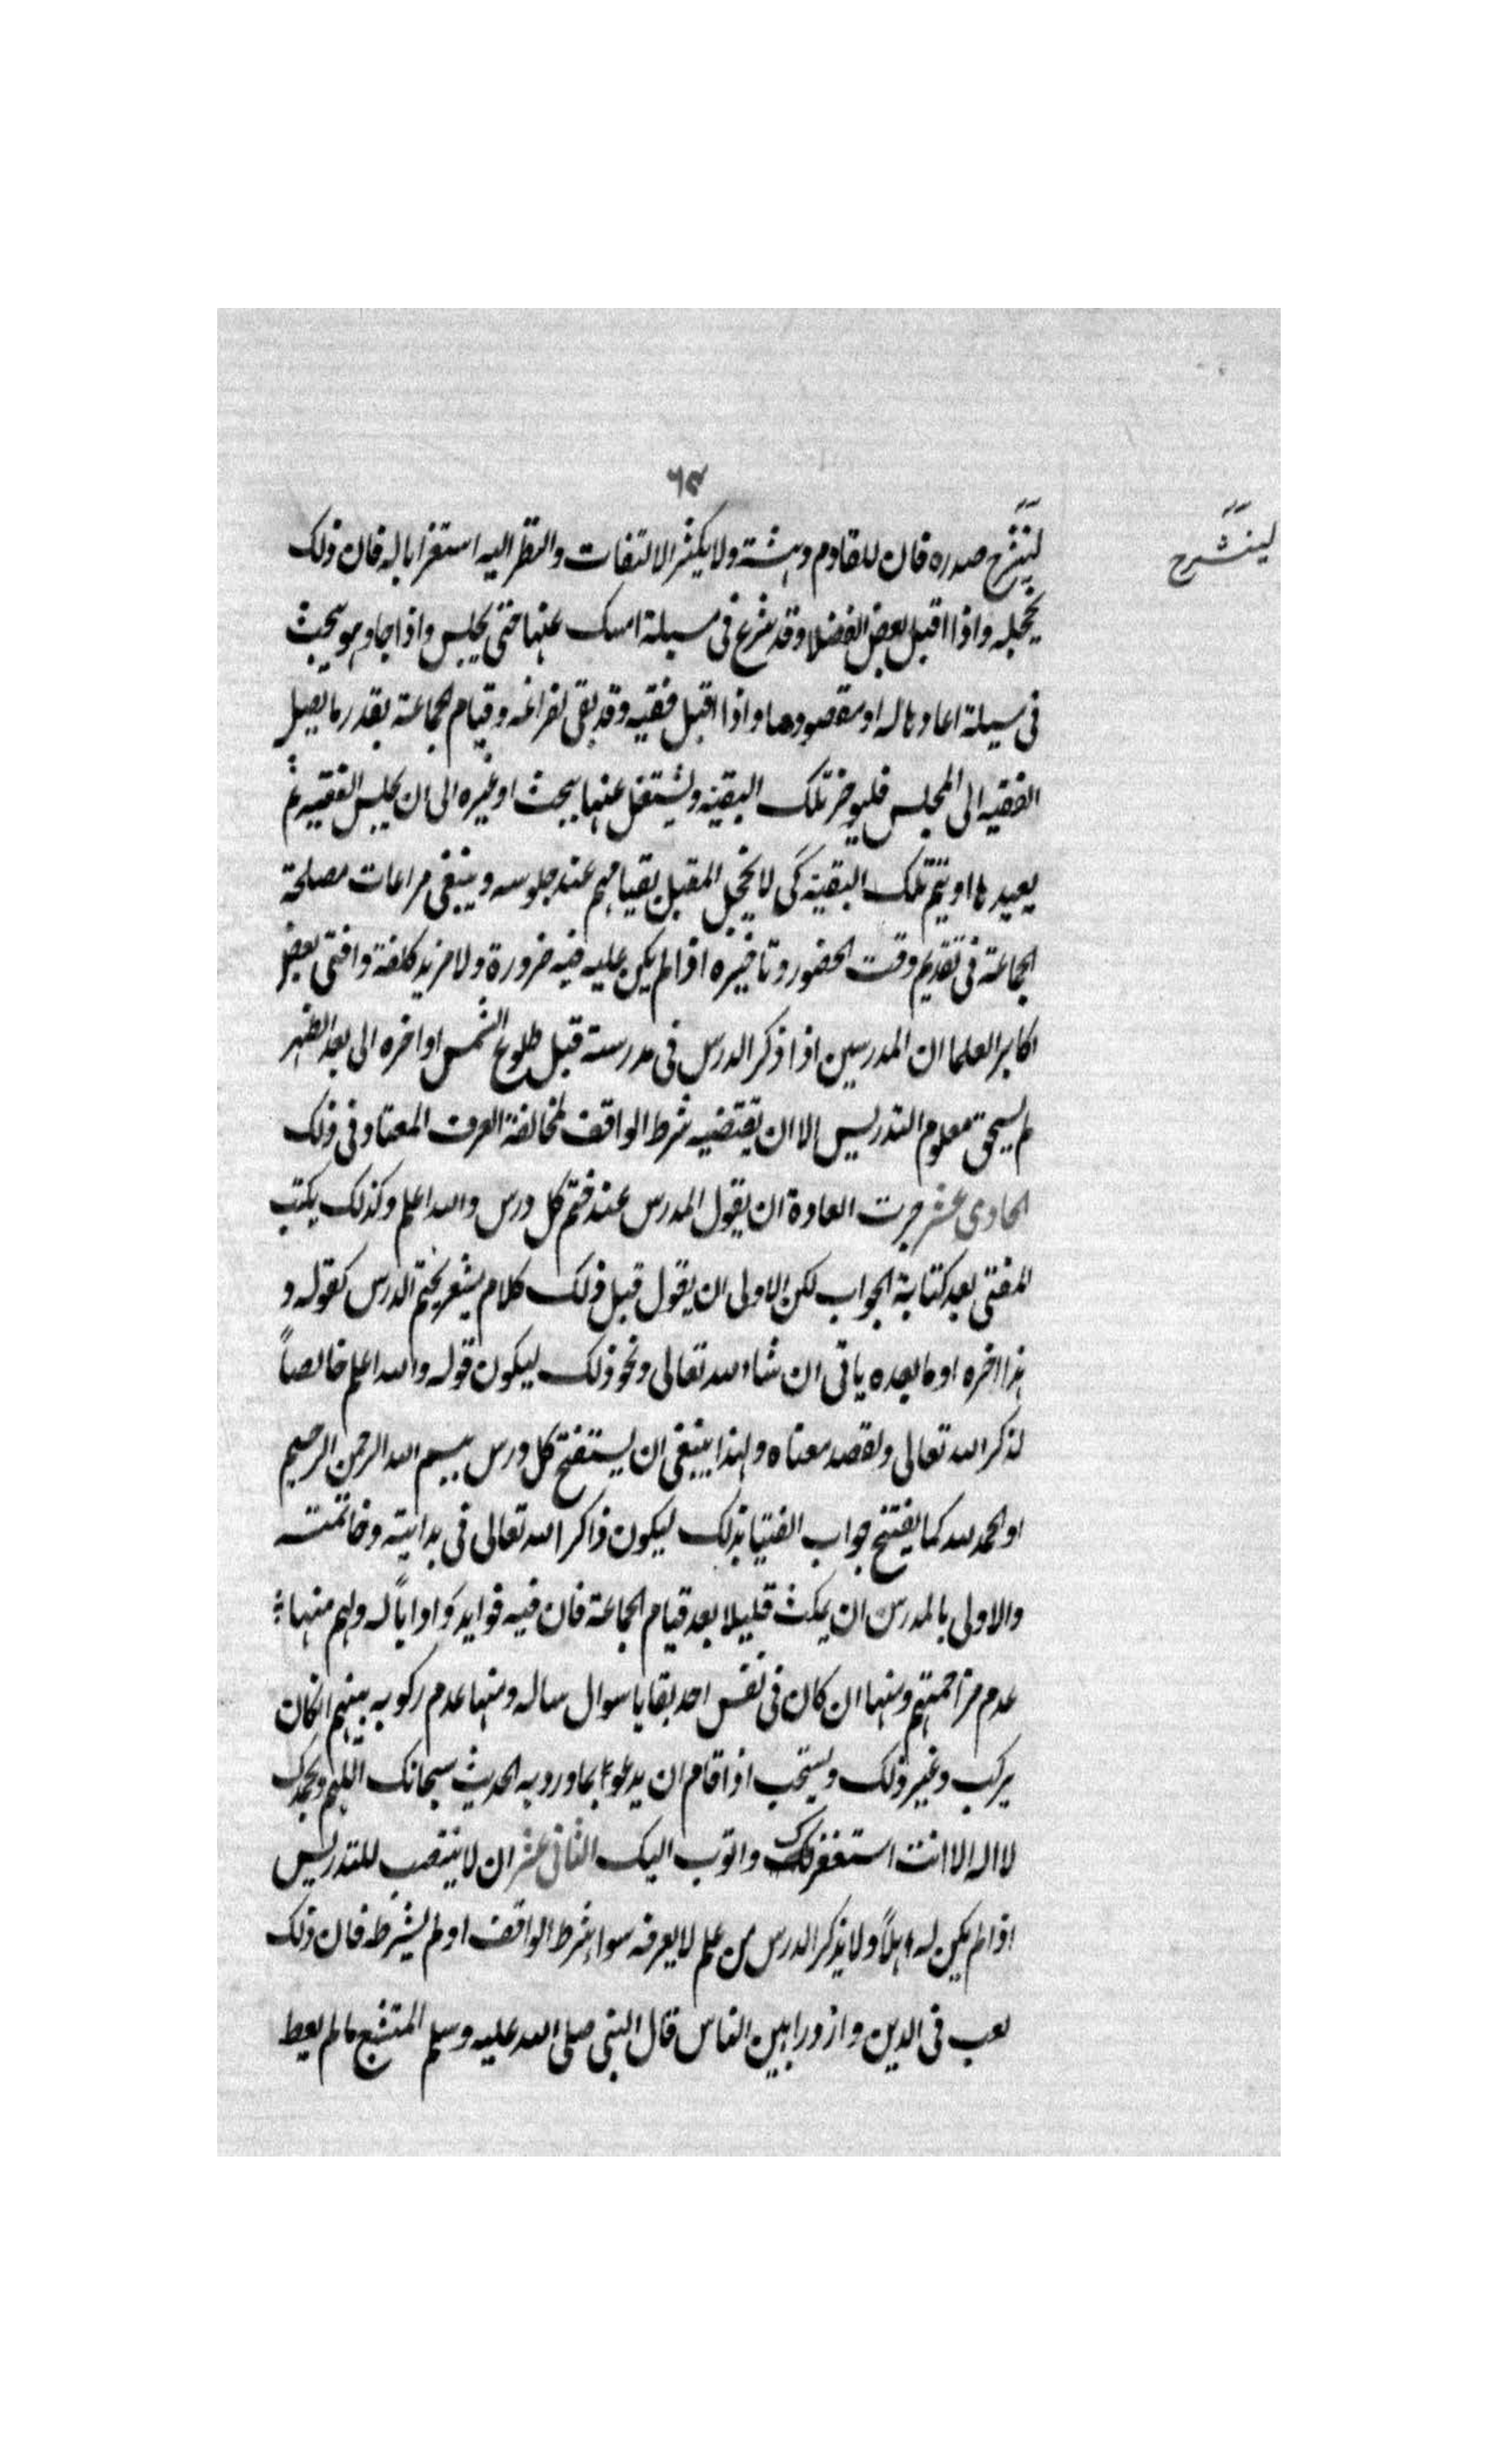 ٦٣
لينشرح صدره فان للقادم دهشة ولا يكثر الالتفات والنظر اليه استغرابا له فان ذلك
لينشرح
يخجله واذا اقبل بعض الفضلا وقد شرع فى مسيلة امسك عنها حتى يجلس واذا جا وهو يبحث
فى مسيلة اعادها له او مقصودها واذا اقبل فقيه وقد بقى لفراغه وقيام الجماعة بقدر ما يصل
الفقيه الى المجلس فليوخر تلك البقية ويشتغل عنها ببحث او غيره الى ان يجلس الفقيه ثم
يعيدها او يتم تلك البقية كى لا يخجل المقبل بقيامهم عند جلوسه وينبغى مراعات مصلحة
الجماعة فى تقديم وقت الحضور وتاخيره اذا لم يكن عليه فيه ضرورة ولا مزيد كلفة وافتى بعض
اكابر العلما ان المدرسين اذا ذكر الدرس فى مدرسة قبل طلوع الشمس او اخره الى بعد الظهر
لم يستحق معلوم التدريس الا ان يقتضيه شرط الواقف لمخالفة العرف المعتاد فى ذلك
الحادى عشر جرت العادة ان يقول المدرس عند ختم كل درس والله اعلم وكذلك يكتب
المفتى بعد كتابة الجواب لكن الاولى ان يقول قبل ذلك كلام يشعر بختم الدرس كقوله و
هذا اخره او ما بعده ياتى ان شاء الله تعالى ونحو ذلك ليكون قوله والله اعلم خالصاً
لذكر الله تعالى ولقصد معناه ولهذا ينبغى ان يستفتح كل درس ببسم الله الرحمن الرحيم
او الحمد لله كما يفتتح جواب الفتيا بذلك ليكون ذاكر الله تعالى فى بدايته وخاتمته
والاولى بالمدرس ان يمكث قليلا بعد قيام الجماعة فان فيه فوايد وَادابًا له ولهم منها
عدم مزاحمتهم ومنها ان كان فى نفس احد بقايا سوال ساله ومنها عدم ركوبه بينهم ان كان
يركب وغير ذلك ويستحب اذا قام ان يدعوا بما ورد به الحديث سبحانك اللهم وبحمدك
لا اله الا انت استغفرك واتوب اليك الثانى عشر ان لا ينتصب للتدريس
اذا لم يكن له اهلاً ولا يذكر الدرس من علم لا يعرفه سواء شرط الواقف او لم يشرطه فان ذلك
لعب فى الدين وازورا بين الناس قال النبى صلى الله عليه وسلم المتشبع بما لم يعط